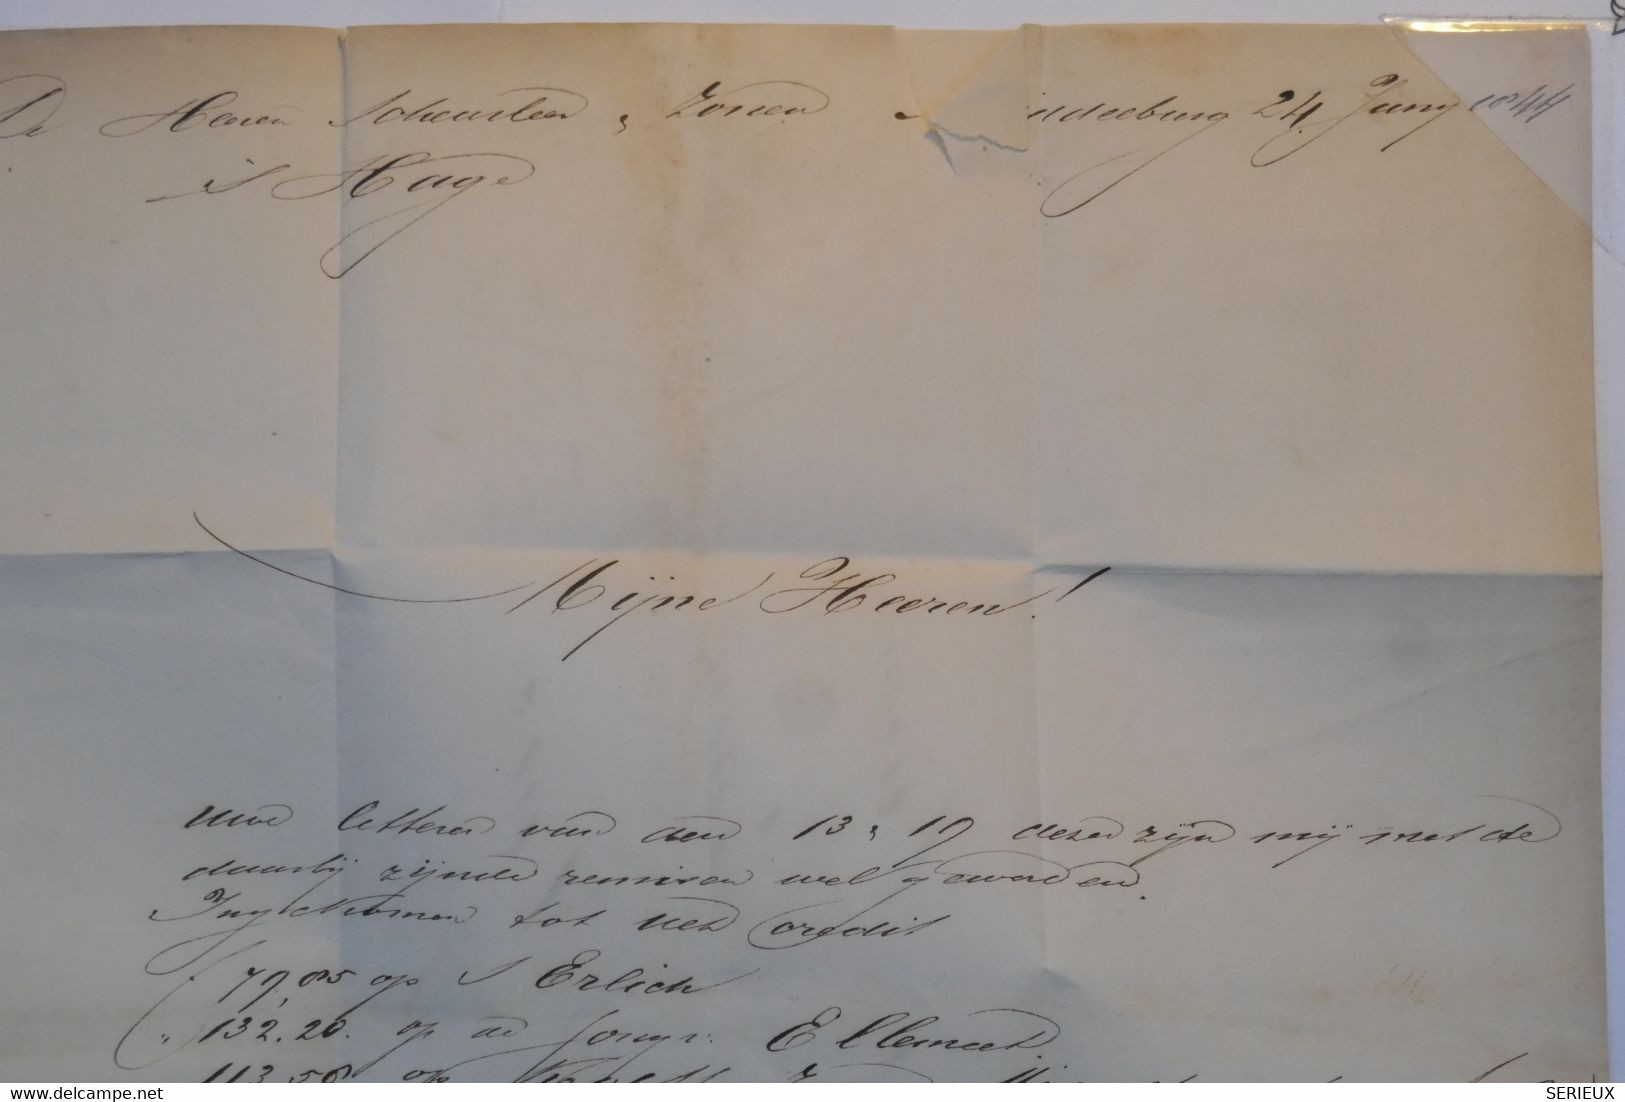 De Heeren Scheurleer & Zonen Middelburg 24 Juny 1844
's Hage
Mijne Heeren!
Uwe letteren van den 13 & 19 dezer zijn mij met de
daarbij zijnde remisen wel geworden.
Ingekomen tot Ued Credit
f 79,85 op S Erlich
" 132.20. op de Jonge Ellemeet
113,58 op
delcampe.net
SERIEUX